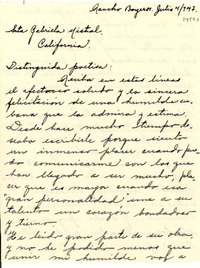 Rancho Boyeros. Julio 4/947.
Srta Gabriela Mistral.
California.
Distinguida poetisa:
Reciba en estas líneas
el afectuoso saludo y la sincera
felicitación de una humilde cu-
bana que la admira y estima.
Desde hace mucho tiempo de-
seaba escribirle porque siento
un inmenso placer cuando pue-
do comunicarme con los que
han llegado a ser mucho, pla-
cer que es mayor cuando esa
gran personalidad une a su
talento un corazón bondadoso
y tierno.
He leído gran parte de su obra
y no he podido menos que
unir mi humilde voz a